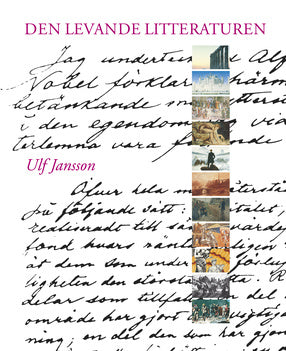 DEN LEVANDE LITTERATUREN
Jag undertecknad Alf
Nobel förklar härm
betänkande m
i den egendom vid
terlemna vara
Ulf Jansson
Öfver hela återstå
på följande sätt: talet,
realiseradt till sä varde
fond hvars ränt ligen
åt dem som under förlup
ligheten den största R
delar som tillfall del
område har gjort
ning; en del den som har gjort